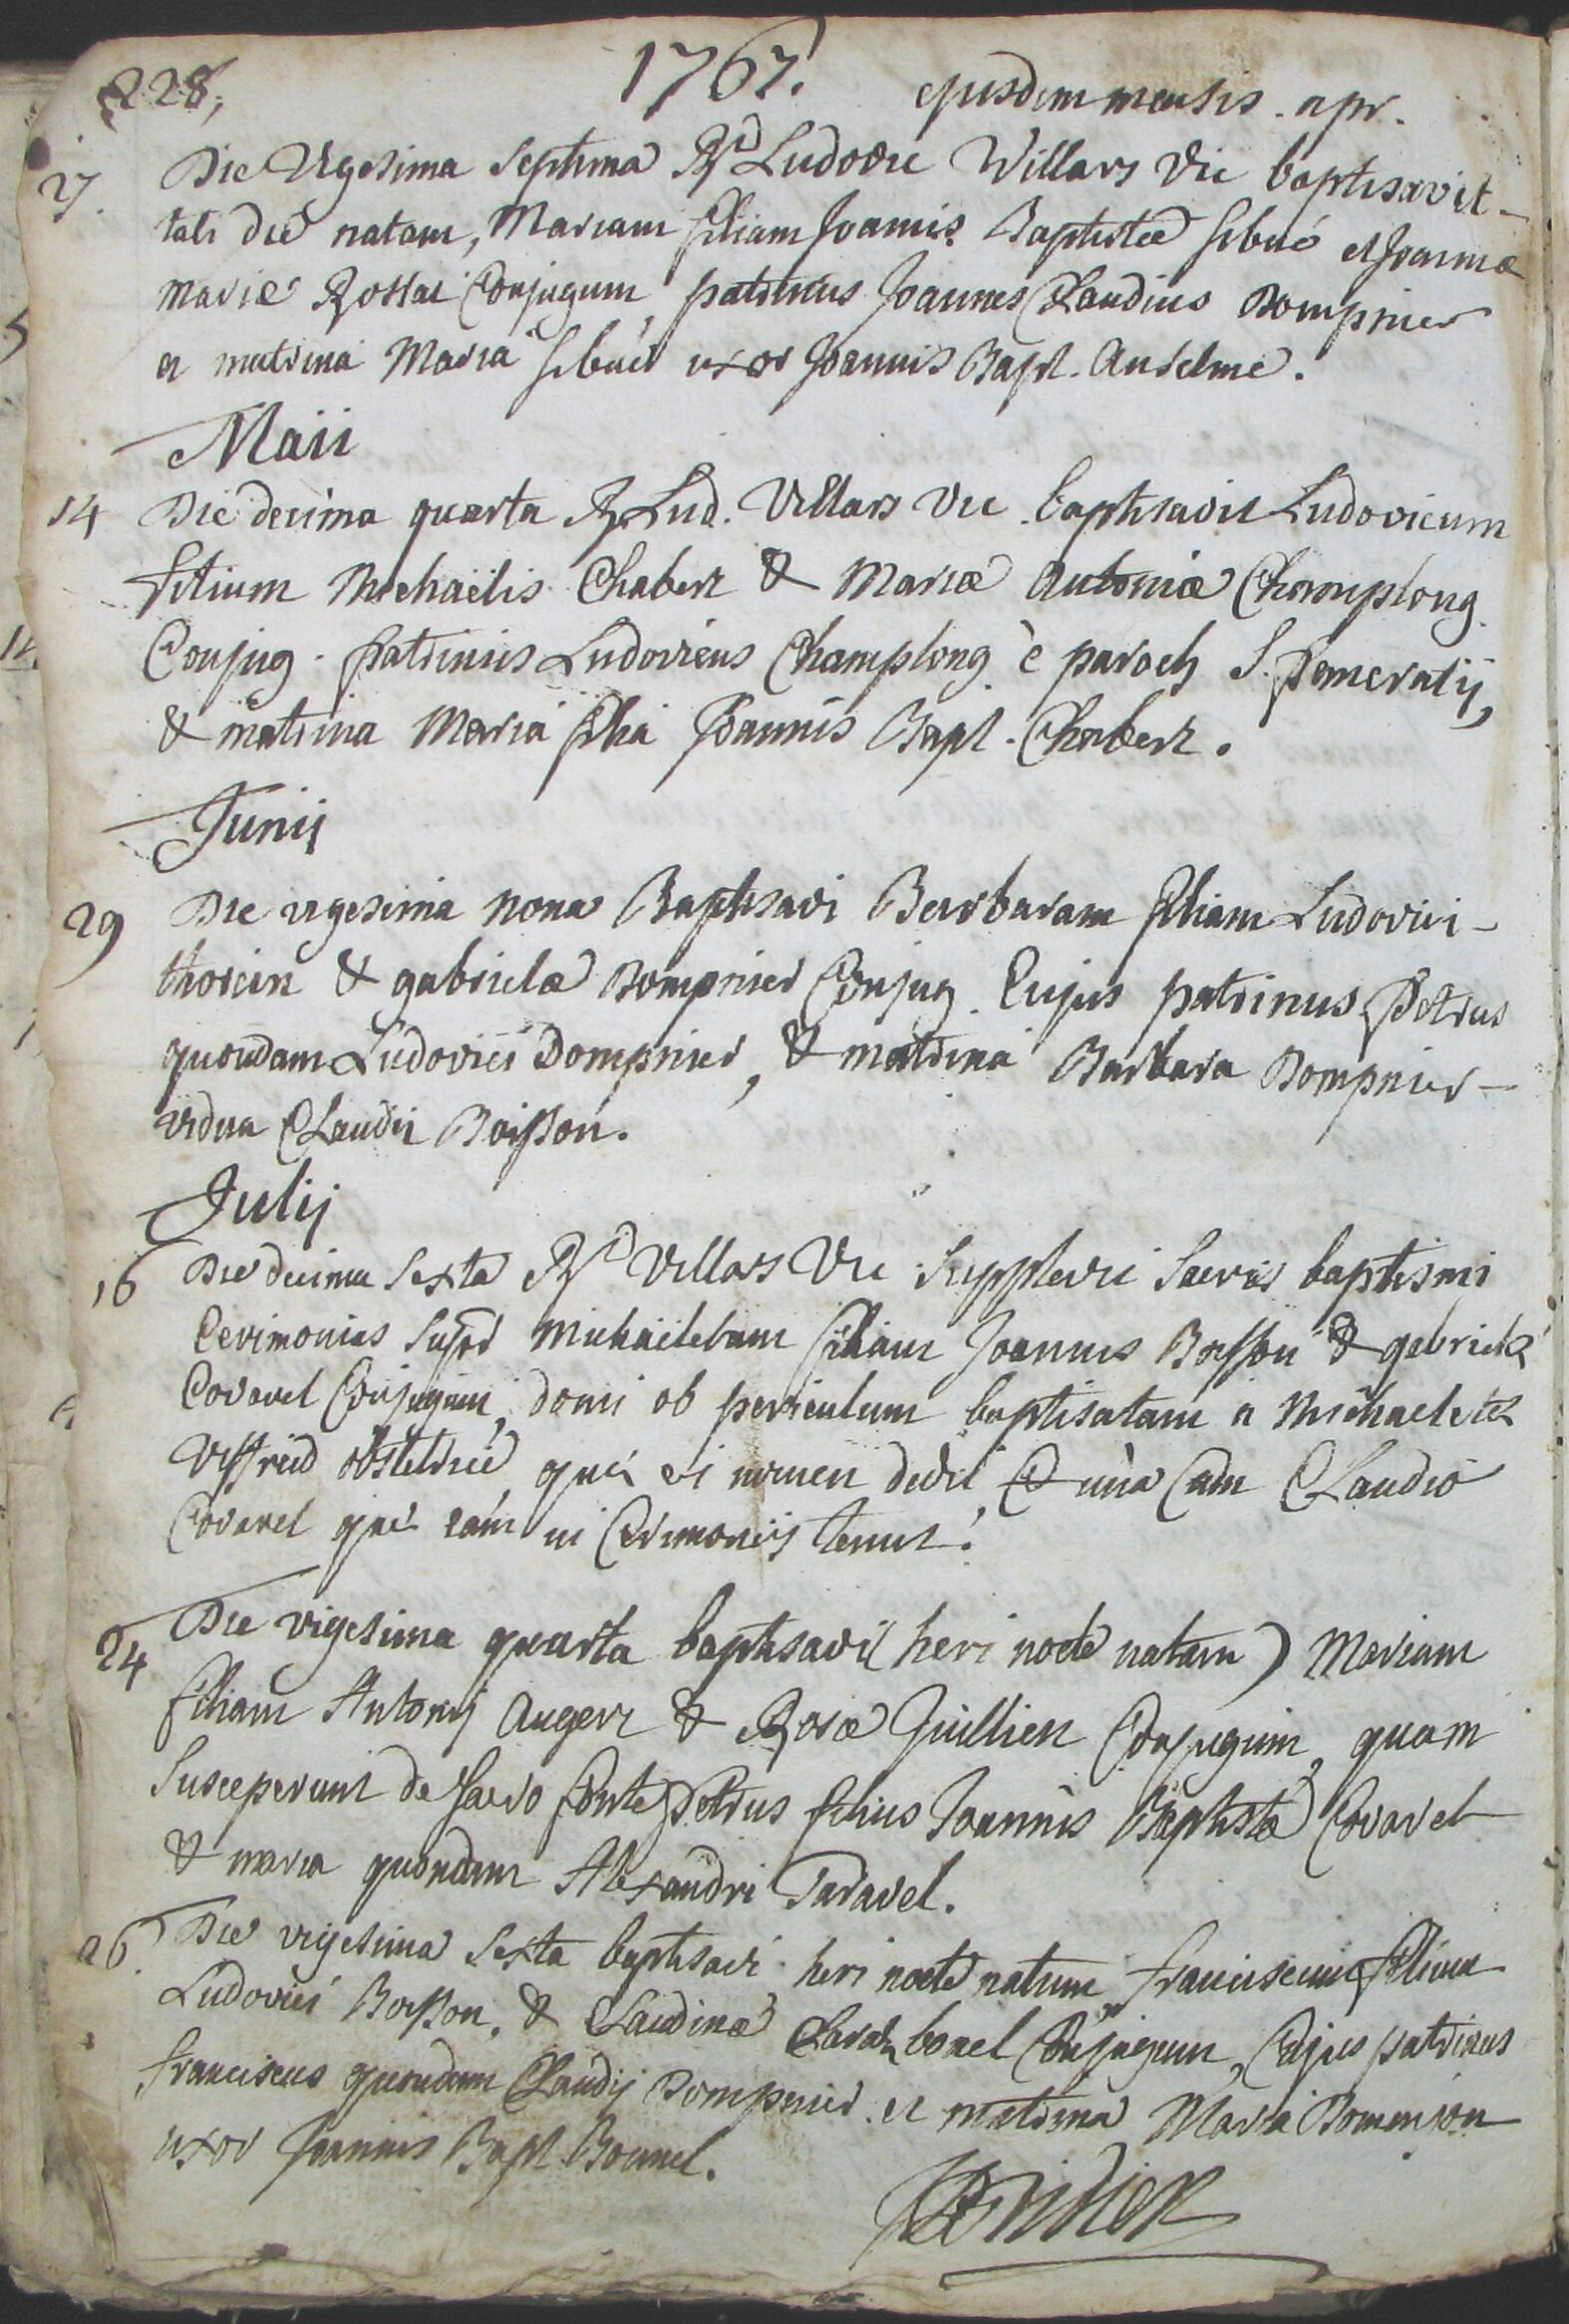 228,
1767.
ejusdem mensis. apr.
27. Die Vigesima Septima Rd Ludovic Willars Vic baptisavit
tali die natam, Mariam filiam Joannis Baptistæ Sibué et Joannæ
Mariæ Rostai Conjugum, patrinus Joannes Claudius Dompnier
et matrina Maria Sibué uxor Joannis Bapt. Anselme.
Maii
14 Die decima quarta R Lud. Villars Vic. baptisavit Ludovicum
filium Michaëlis Chabert & Mariæ Antoniæ Champlong
Conjug. patrinus Ludovicus Champlong è paroch S. Pancratij,
& matrina Maria filia Joannis Bapt. Chabert.
Junij
29 Die vigesima nona Baptisavi Barbaram filiam Ludovici
thorein & gabrielæ Dompnier Conjug. Cujus patrinus Petrus
quondam Ludovici Dompnier, & matrina Barbara Dompnier
vidua Claudii Boisson.
Julij
16 Die decima Sexta Rd Villars Vic Supplevi Sacras baptismi
Cerimonias Michaëletam filiam Joannis Boisson & gabrielæ
Covarel Conjugum, domi ob periculum baptisatam a Michaeleta
obstetrice, quæ ei nomen dedit & unà Cum Claudio
Covarel qui eam in Cerimoniis tenuit.
24 Die vigesima quarta baptisavi (heri nocte natam) Mariam
filiam Antonij Augert & Rosæ Juillien Conjugum, quam
Susceperunt de Sacro fonte Petrus filius Joannis Baptistæ Covarel
& maria quondam Alexandri Taravel.
26. Die vigesima Sexta baptisavi heri nocte natum, franciscum filium
Ludovici Boisson, & Claudinæ Clarahbonel Conjugum, Cujus patrinus
franciscus quondam Claudij Dompnier et matrina Maria Domenjon
uxor Joannis Bapt Bonnel.